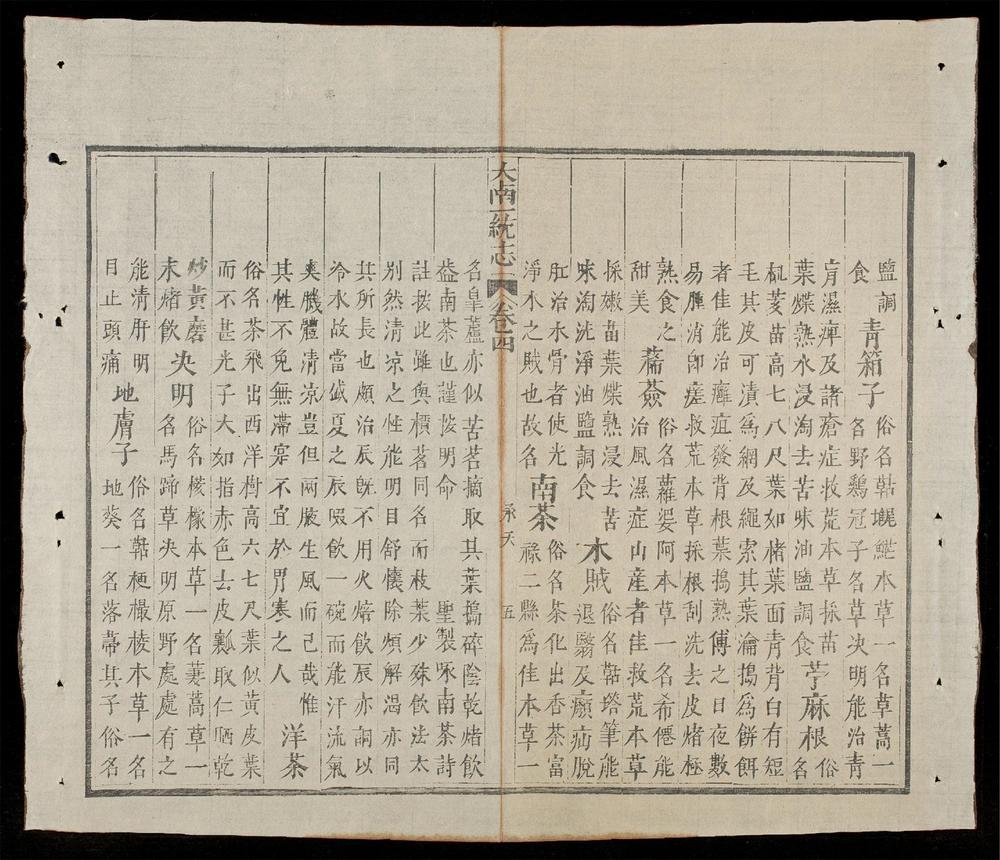 鹽調
食
青箱子
本草一名草蒿一
名野鷄冠子名草决明能治青
肓濕痺及諸瘡症救荒本草採苗
葉煠熟水浸淘去苦味油鹽調食
苧麻根
俗
名
芰苗高七八尺葉如楮葉面青背白有短
毛其皮可漬爲網及繩索其葉瀹搗爲餅餌
者佳能治癰疽發背根葉搗熟傅之日夜數
易腫消卽瘥救荒本草採根刮洗去皮煮極
熟食之
甜美
豨薟
俗名蘿婆阿本草一名希僊能
治風濕症山産者佳救荒本草
採嫩苗葉煠熟浸去苦
味淘洗淨油鹽調食
木賊
俗名𩹫塔筆能
退翳及癲疝脫
肛治水骨者使光
淨木之賊也故名
南茶
俗名茶化出香茶富
祿二縣爲佳本草一
大南一統志
卷四
承天
五
名臯蘆亦似苦茗摘取其葉搗碎陰乾煮飲
葢南茶也謹按明命
聖製咏南茶詩
註按此雖與檟茗同名而枝葉少殊飲法太
別然清凉之性能明目舒懷除煩解渴亦同
其所長也頗治辰旣不用火焙飲辰亦調以
冷水故當盛夏之辰啜飲一碗而能汗流氣
爽膓體清凉豈但兩腋生風而已哉惟
其性不免無滯寔不宜於胃寒之人
洋茶
俗名茶飛出西洋樹高六七尺葉似黃皮葉
而不甚光子大如指赤色去皮瓤取仁晒乾
炒黃磨
末煮飲
决明
俗名㭲檺本草一名萋蒿草一
名馬蹄草决明原野處處有之
能清肝明
目止頭痛
地膚子
俗名𩹫梗橃棱本草一名
地葵一名落帚其子俗名